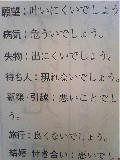 願望：叶いにくいでしょう。
病気：危ういでしょう。
失物：出にくいでしょう。
待ち人：現れないでしょう。
新築・引越：悪いことでし
ょう。
旅行：良くないでしょう。
結婚・付き合い：悪いでし